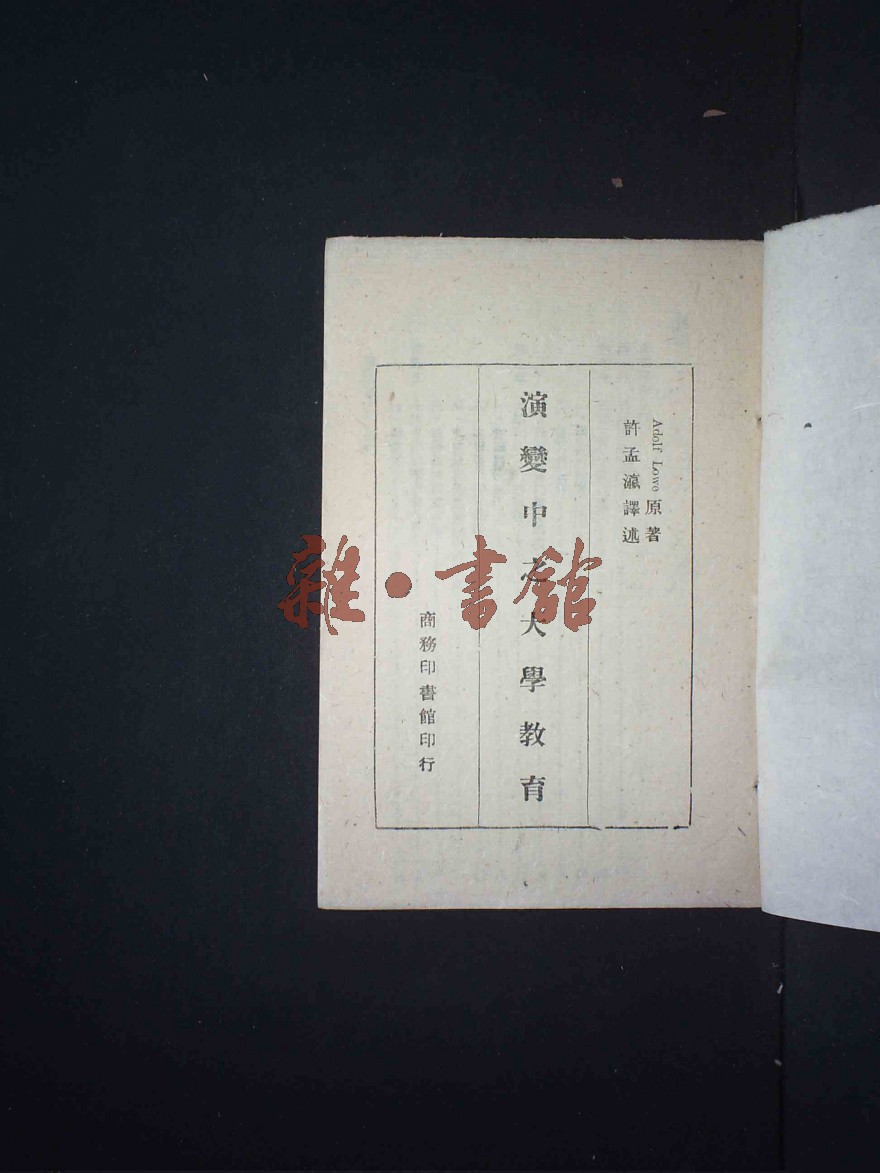 Adolf Lowe 原著
許孟瀛譯述
演變中之大學教育
商務印書館印行
雜·書館